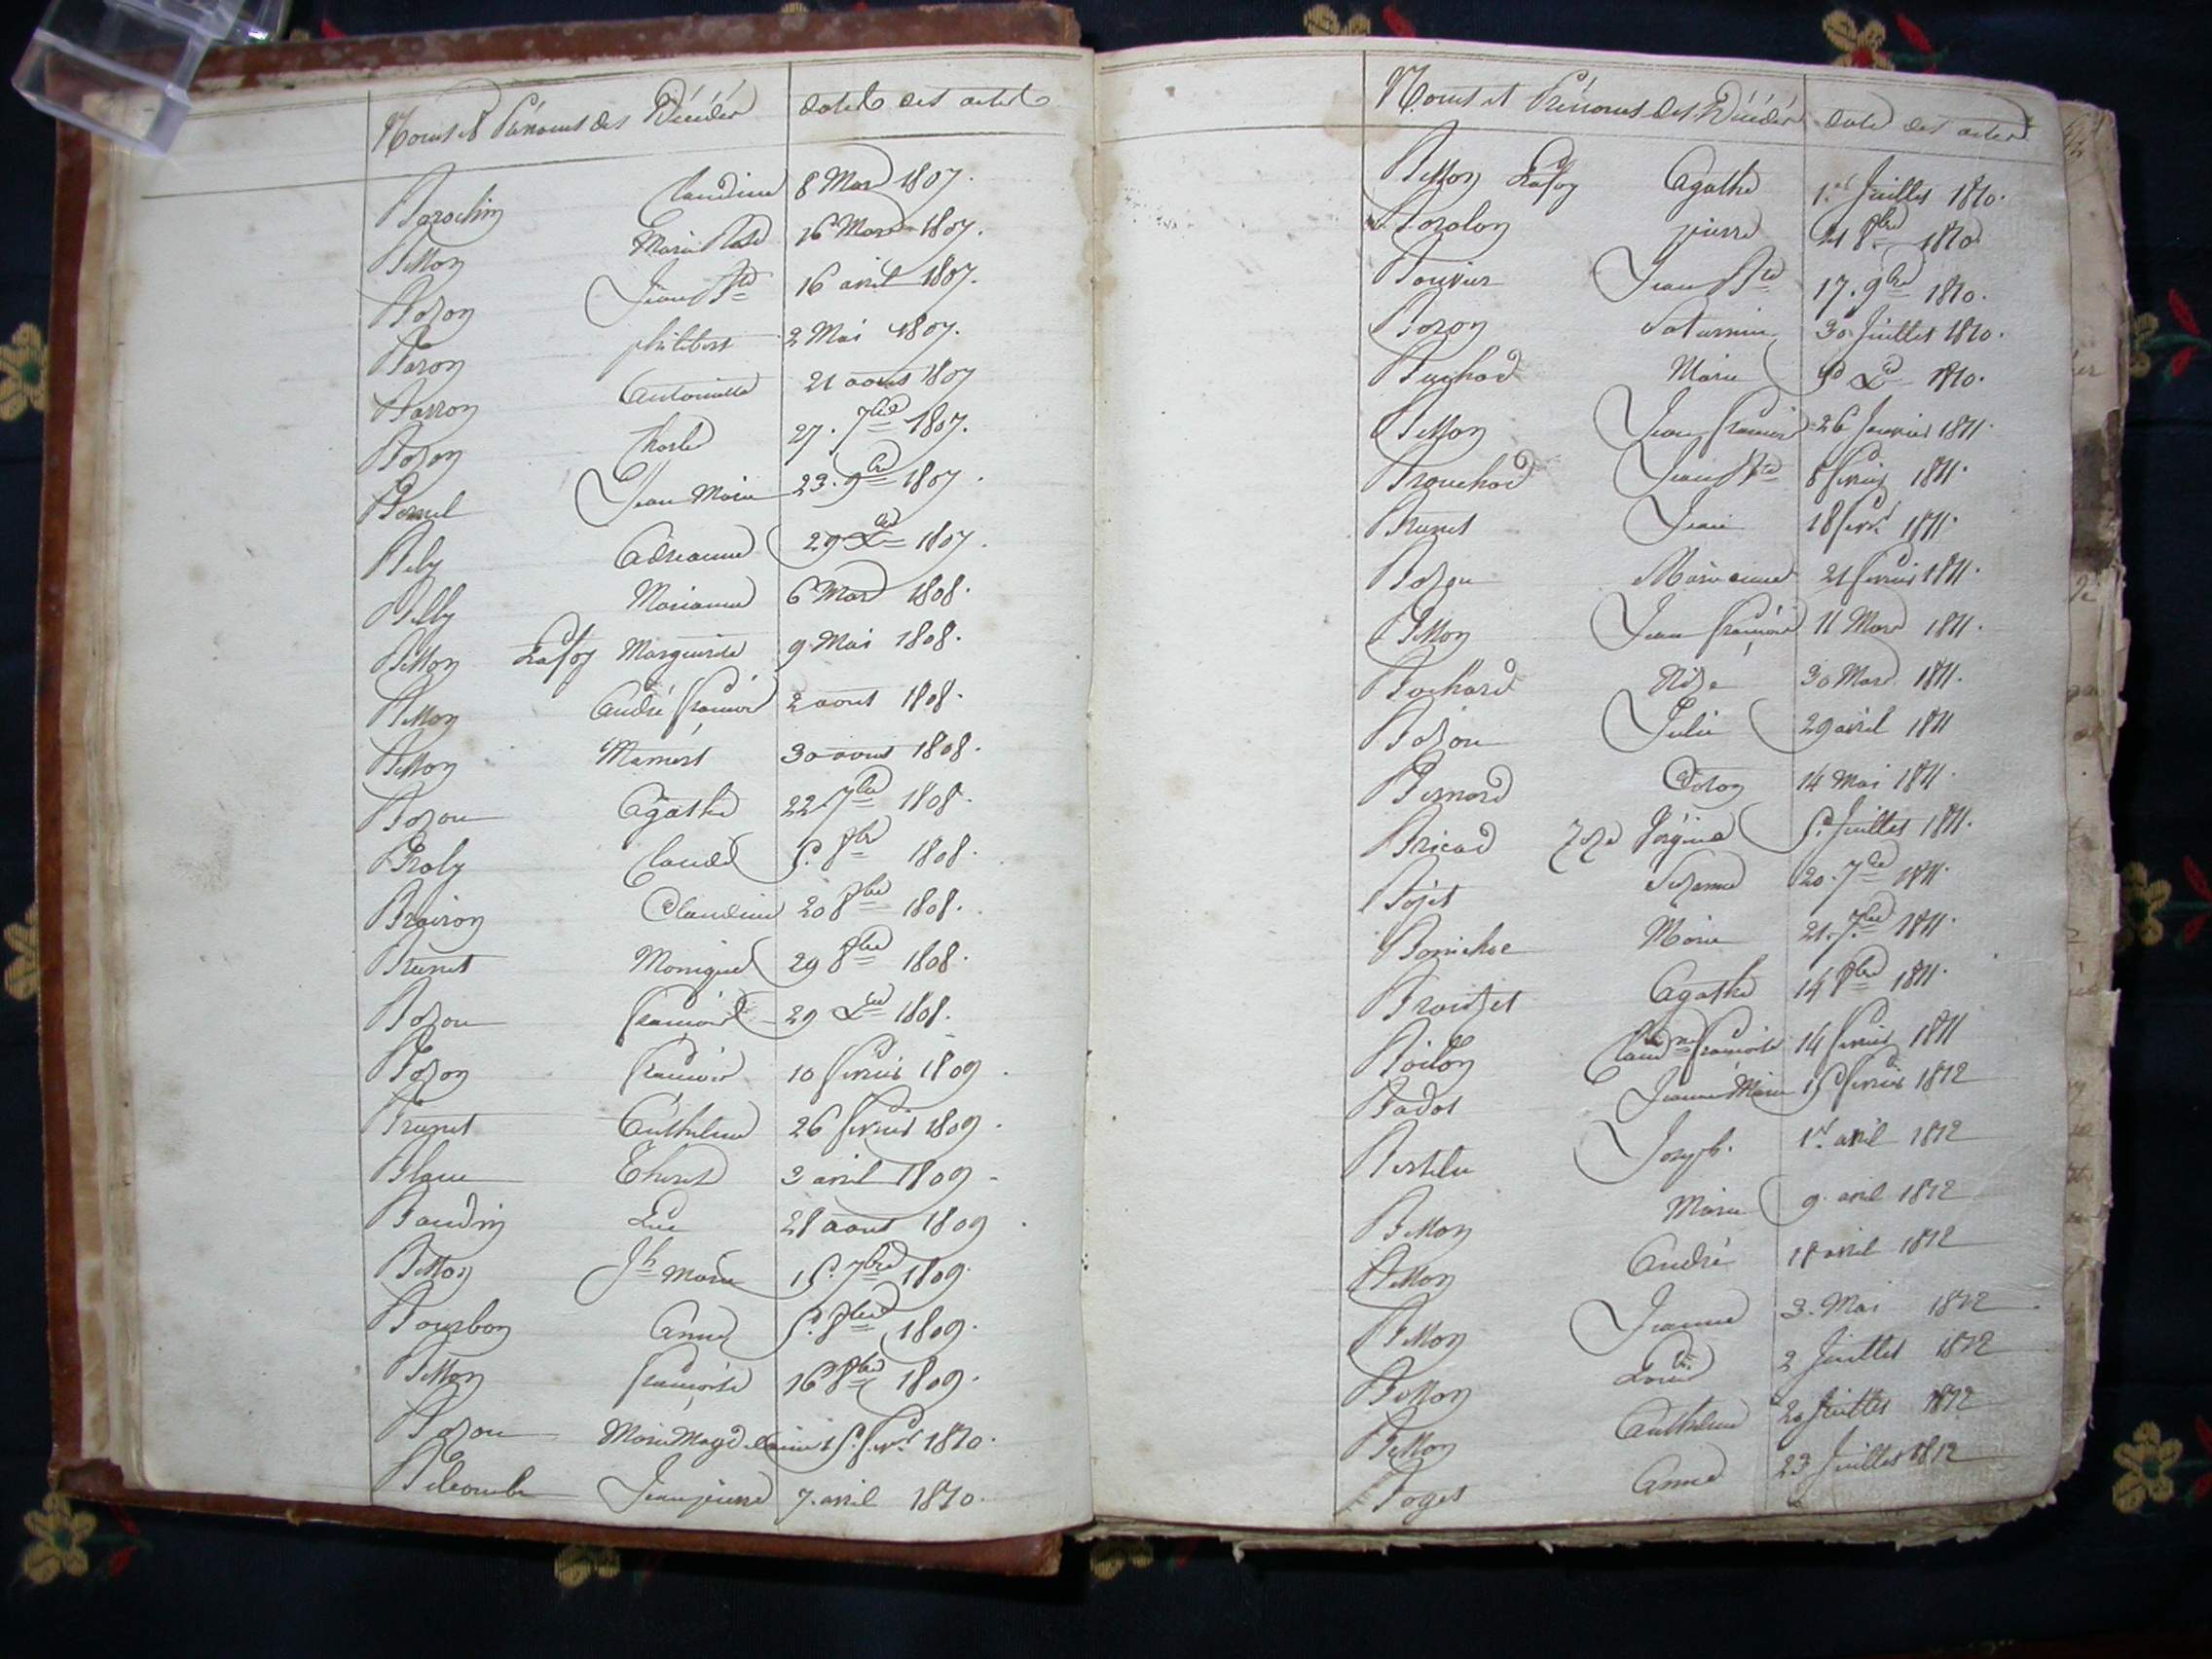 Noms et Prénoms des Décédés date des actes
Barochin Claudine 8 Mars 1807.
Billon Marie Rose 16 Mars 1807.
Bozon Jean Bte 16 avril 1807.
Baron philibert 2 Mai 1807.
Barron Antoinette 21 aout 1807
Bozon Charle 27. 7bre 1807.
Jean Marie 23. 9bre 1807.
Bely Adrianne 29 Xbre 1807.
Billy Marianne 6 Mars 1808.
Billon Lafoy Marguerite 9 Mai 1808.
Billon André François 2 aout 1808.
Billon Mamert 30 aout 1808.
Bozon Agathe 22 7bre 1808.
Broly Claude 5. 8bre 1808.
Brairon Claudine 20 8bre 1808.
Brunet Monique 29 8bre 1808.
Bozon François 29 Xbre 1808.
Bozon François 10 fevrier 1809.
Brunet Anthelme 26 fevrier 1809.
Blanc Therese 3 avril 1809
Baudin Luc 28 aout 1809.
Billon Jh Marie 15. 7bre 1809.
Bourbon Anne 5. 8bre 1809.
Billon françoise 16 8bre 1809.
Bozon Marie Magdelaine 15. fevr 1810.
Belcombe Jean pierre 7. avril 1810.
Noms et Prénoms des Décédés date des actes
Billon Lafoy Agathe 1er Juillet 1810.
pierre 21 8bre 1810.
Bouvier Jean Bte 17. 9bre 1810.
Bozon Saturnin 30 Juillet 1810.
Marie Xbre 1810.
Billon Jean François 26 Janvier 1811.
Brouchod Jean Bte 8 fevrier 1811.
Brunet Jean 18 fevr 1811.
Bozon Marieanne 21 fevrier 1811.
Billon Jean François 11 Mars 1811.
Bochard 30 Mars 1811.
Bozon Julie 29 avril 1811
Bernard 14 Mai 1811.
Bricod 5. Juillet 1811.
Bojet Suzanne 20. 7bre 1811.
Marie 21. 7bre 1811.
Agathe 14 8bre 1811.
Boiton Claudne Françoise 14 fevrier 1811
Badot Jeanne Marie 15 fevrier 1812
Bertelin Joseph. 1er avril 1812
Billon Marie 9. avril 1812
Billon André 18 avril 1812
Billon Jeanne 3. Mai 1812
Billon Louis 2 Juillet 1812
Billon Anthelme 20 Juillet 1812
Boget Anne 23 Juillet 1812